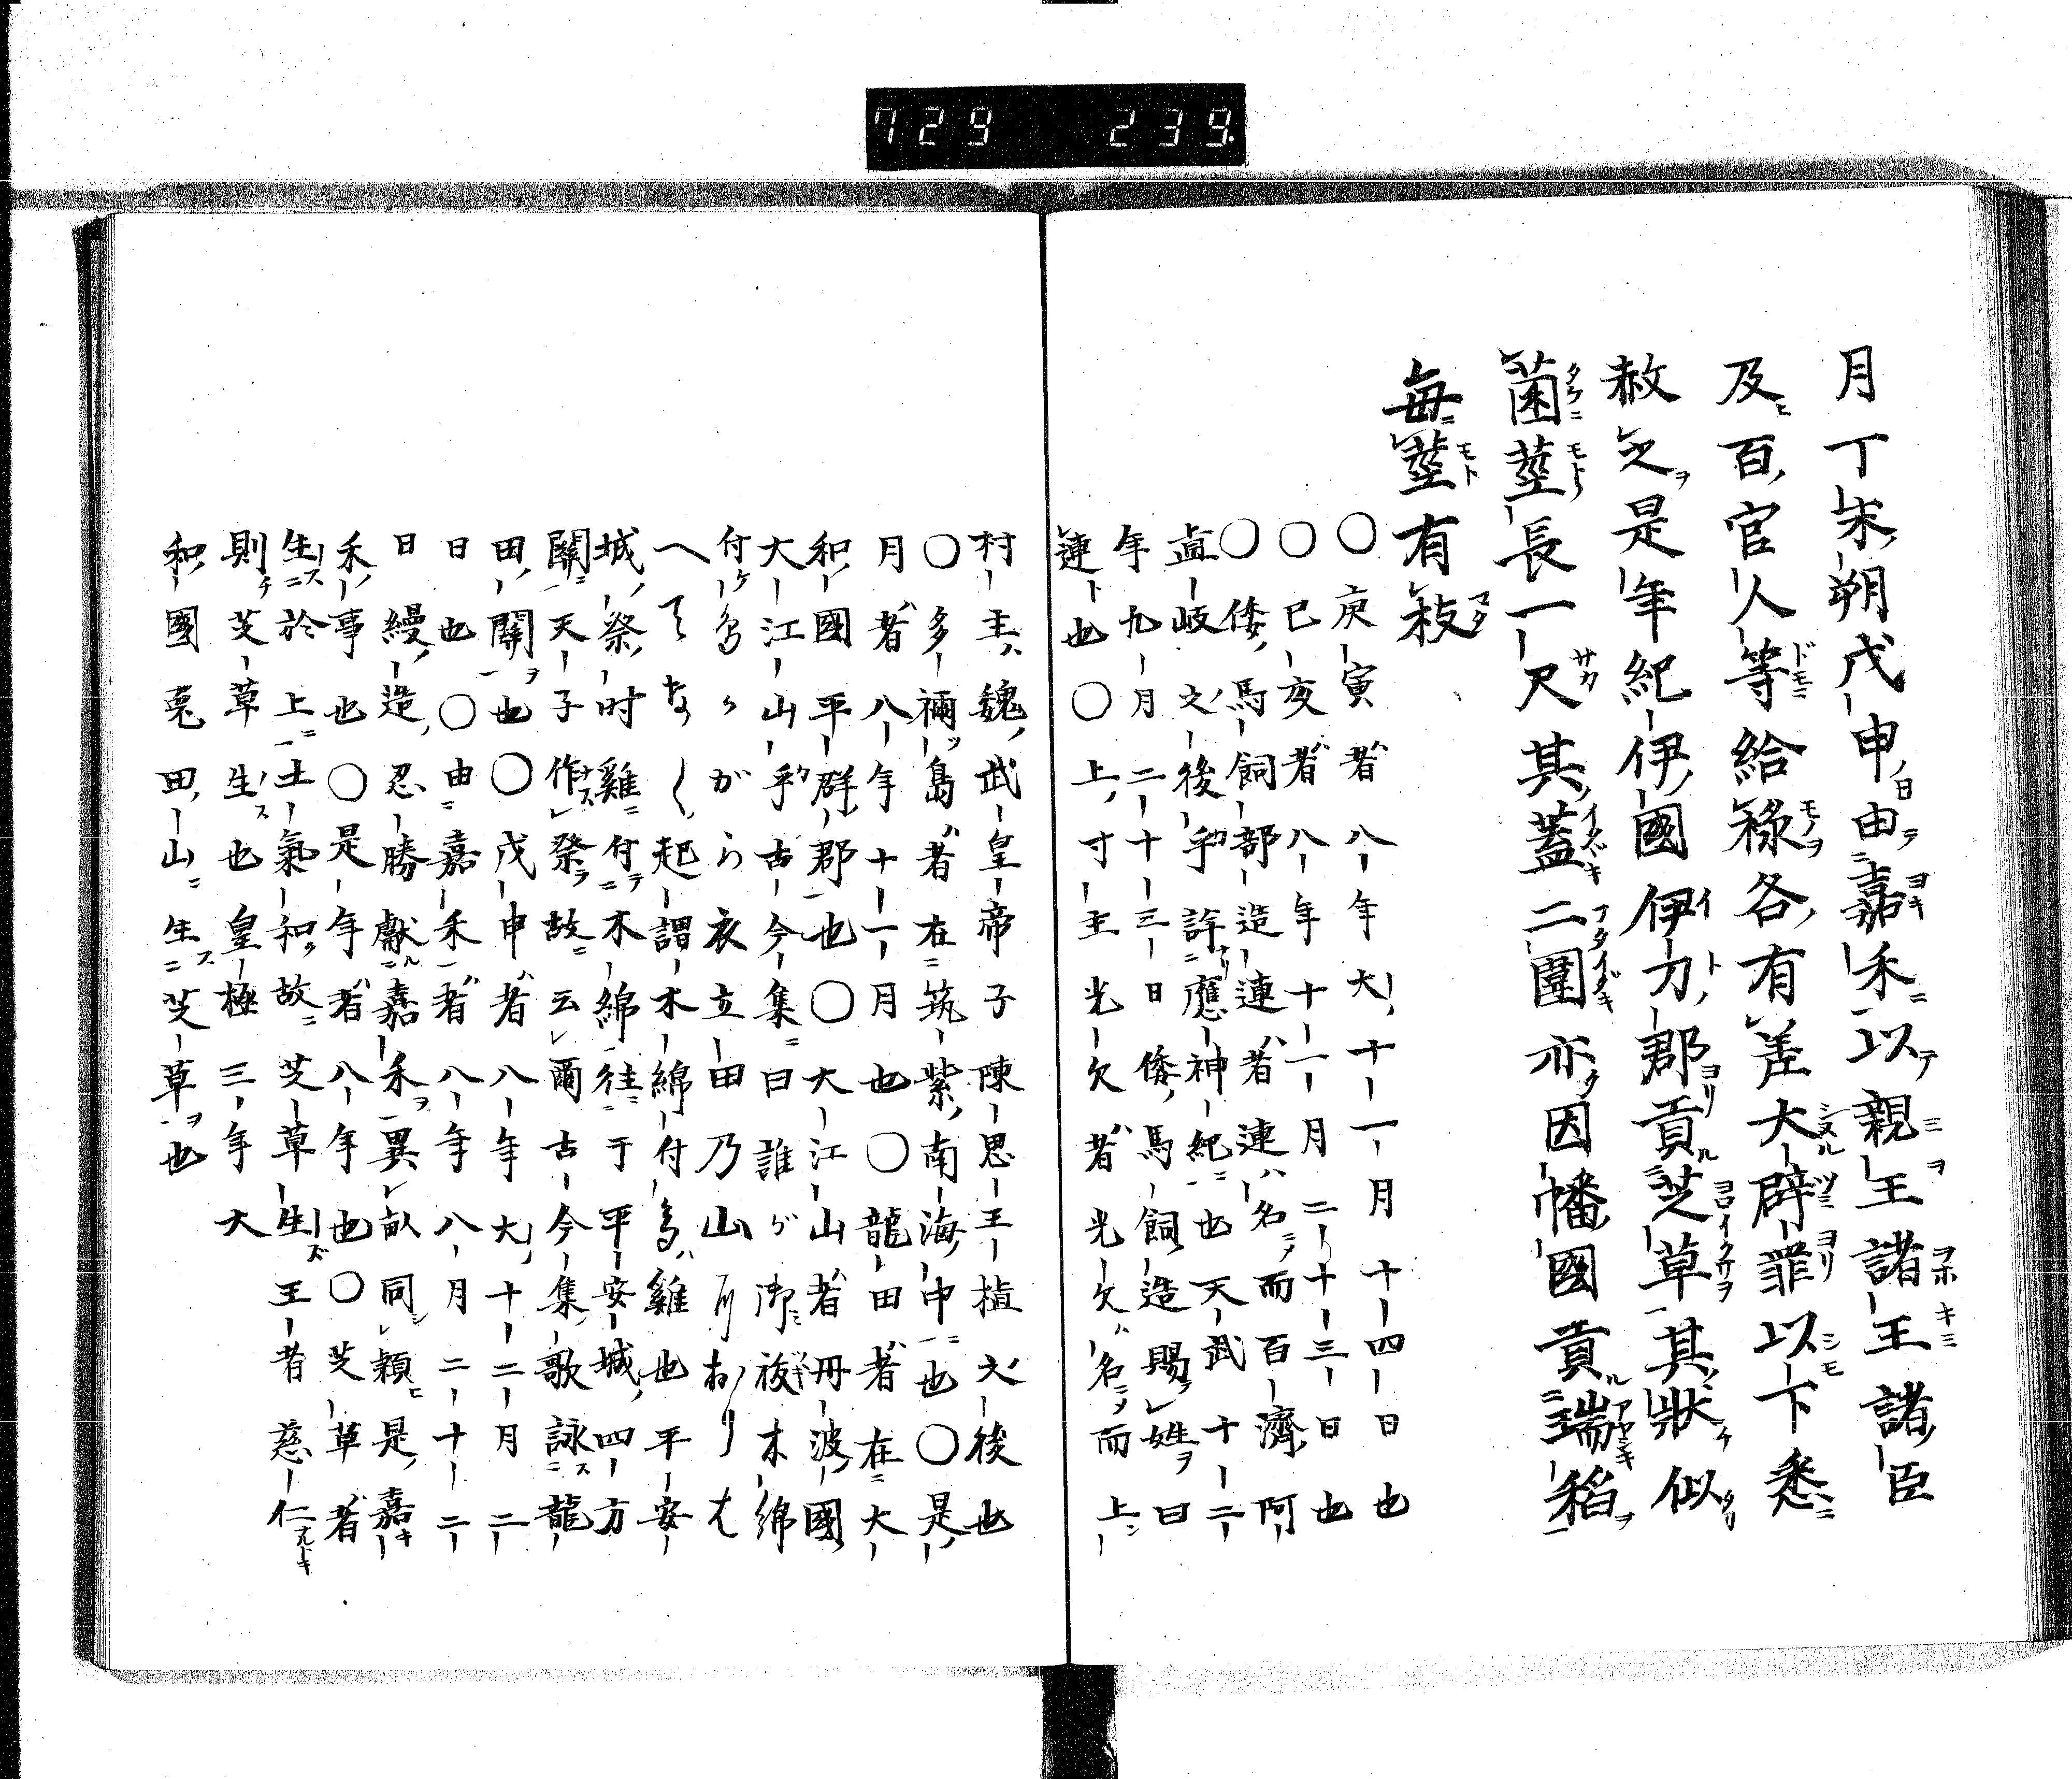 729 239
月丁未朔戊申由嘉禾以親王諸王諸臣
及百官人等給祿各有差大辟罪以下悉
赦之是年紀伊國伊刀郡貢芝草其狀似
菌莖長一尺其蓋二圍亦因幡國貢瑞稻
每莖有枝
〇庚寅者八年大十一月十四日也
〇巳亥者八年十一月二十三日也
〇倭馬飼部造連者連名而百濟阿
直岐之後乎詳應神紀也天武十二
年九月二十三日倭馬飼造賜姓曰
連也〇上寸主光欠者光欠名而上
村主魏武皇帝子陳思王植之後也
〇多禰島者在筑紫南海中也〇是
月者八年十一月也〇龍田者在大
和國平群郡也〇大江山者丹波國
大江山乎古今集曰誰ガ御祓木綿
付鳥ゝがら衣立田乃山尓おりは
へてなく起謂木綿付鳥雞也平安
城祭時雞付木綿徃于平安城四方
關天子作祭故云爾古今集歌詠龍
田關也〇戊申者八年大十二月二
日也〇由嘉禾者八年八月二十二
日縵造忍勝獻嘉禾異畝同穎是嘉
禾事也〇是年者八年也〇芝草者
生於上土氣和故芝草生王者慈仁
則芝草生也皇極三年大
和國菟田山生芝草也